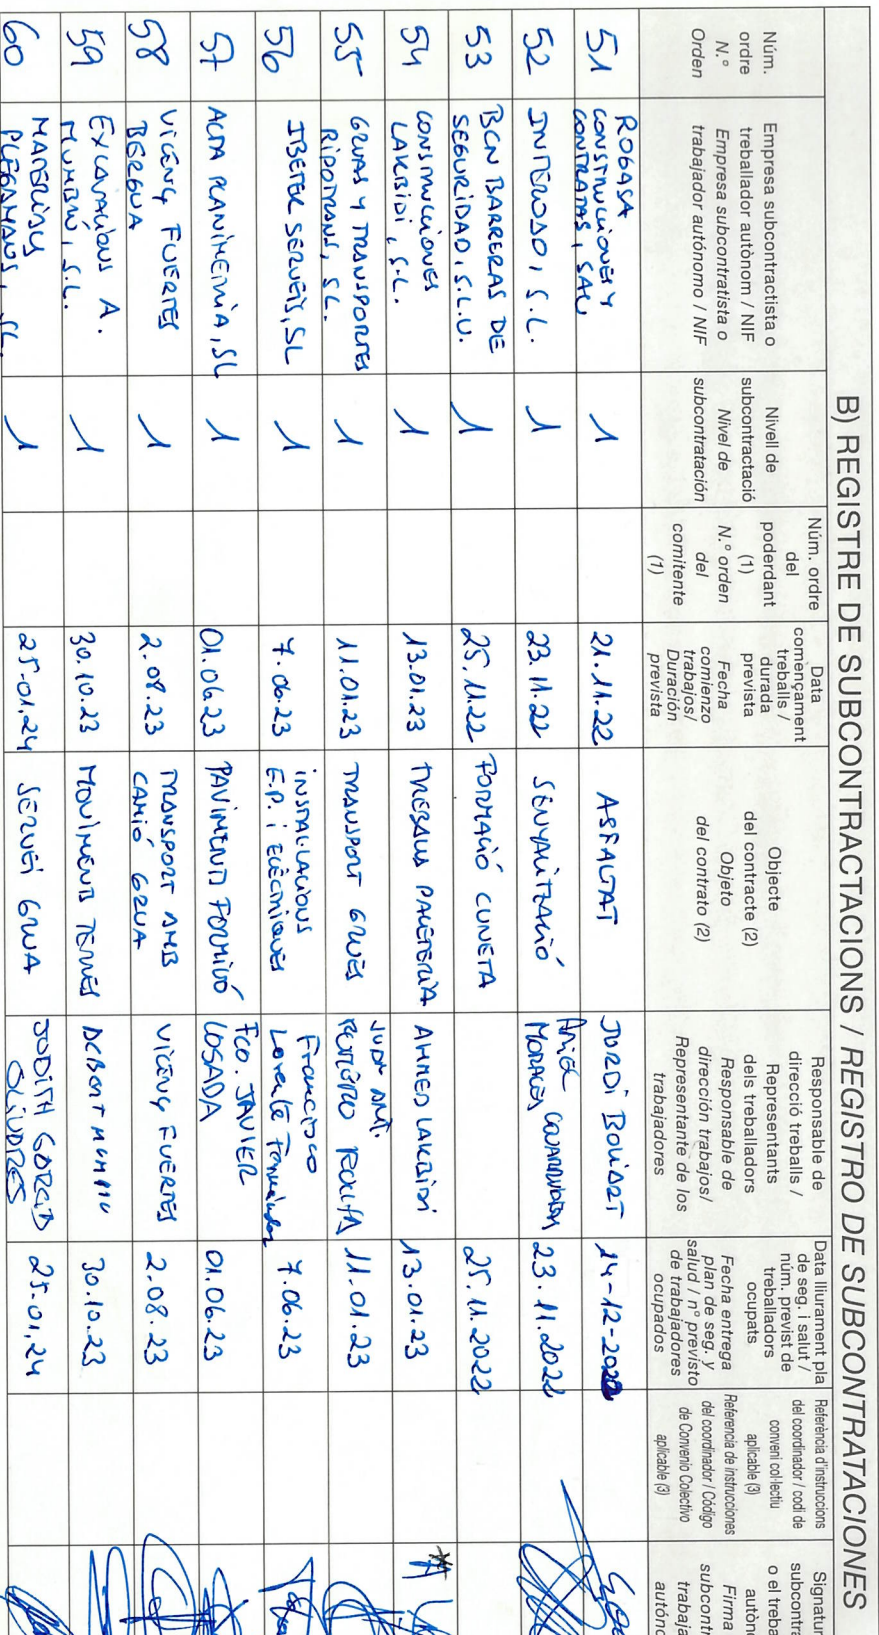 B) REGISTRE DE SUBCONTRACTACIONS / REGISTRO DE SUBCONTRATACIONES
Núm.
ordre
N.º
Orden
Empresa subcontractista o
treballador autònom / NIF
Empresa subcontratista o
trabajador autónomo / NIF
Nivell de
subcontractació
Nivel de
subcontratación
Núm. ordre
del
poderdant
(1)
N.º orden
del
comitente
(1)
Data
començament
treballs /
durada
prevista
Fecha
comienzo
trabajos/
Duración
prevista
Objecte
del contracte (2)
Objeto
del contrato (2)
Responsable de
direcció treballs /
Representants
dels treballadors
Responsable de
dirección trabajos/
Representante de los
trabajadores
Data lliurament pla
de seg. i salut /
núm. previst de
treballadors
ocupats
Fecha entrega
plan de seg. y
salud / nº previsto
de trabajadores
ocupados
Referència d'instruccions
del coordinador / codi de
conveni col·lectiu
aplicable (3)
Referencia de instrucciones
del coordinador / Código
de Convenio Colectivo
aplicable (3)
Signatur
subcontra
o el treba
autòn
Firma
subcontr
trabaja
autóno
51
ROGASA
CONSTRUCCIONES Y
CONTRATAS, SAU
1
21.11.22
ASFALTAT
JORDI
14-12-2022
52
INTEROSO, S.L.
1
23.11.22
SENYALITZACIÓ
MORALES
23.11.2022
53
BCN BARRERAS DE
SEGURIDAD, S.L.U.
1
25.11.22
FORMACIÓ CUNETA
25.11.2022
54
CONSTRUCCIONES
LAKBIDI, S.L.
1
13.01.23
TREBALLS PALETERIA
AHMED LAKBIDI
13.01.23
55
GRUAS Y TRANSPORTES
RIPOTRANS, S.L.
1
11.01.23
TRANSPORT GRUES
11.01.23
56
IBETEK SERVEIS, SL
1
7.06.23
INSTAL·LACIONS
E.P. i ELÈCTRIQUES
Francisco
Lorente Fernández
7.06.23
57
ALPA PLANIMETRIA, SL
1
01.06.23
PAVIMENT FORMIGÓ
FCO. JAVIER
LOSADA
01.06.23
58
VICENÇ FUERTES
BERGUA
1
2.08.23
TRANSPORT AMB
CAMIÓ GRUA
VICENÇ FUERTES
2.08.23
59
EXCAVACIONS A.
1
30.10.23
MOVIMENT TERRES
30.10.23
60
PLEGAMANS, SL.
1
25.01.24
SERVEI GRUA
JUDITH
25.01.24